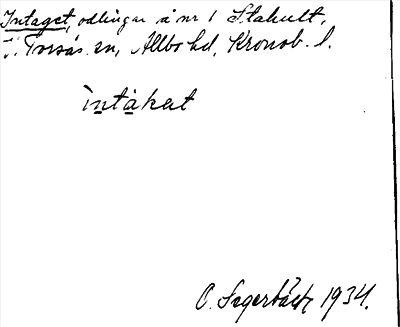 Intaget, odlingar å nr 1 Stakult,
Torsås sn, Allbo hd, Kronob. l.
ìntákat
O. Segerbäck, 1934.